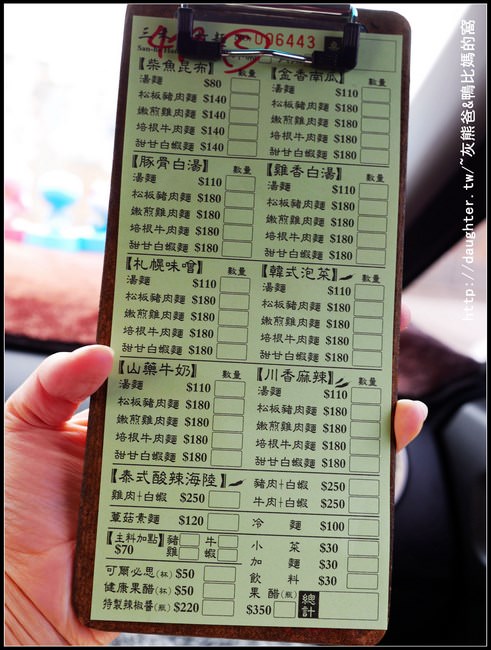 № 006443
【柴魚昆布】 數量
湯麵 $80
松板豬肉麵 $140
嫩煎雞肉麵 $140
培根牛肉麵 $140
甜甘白蝦麵 $140
【金香南瓜】 數量
湯麵 $110
松板豬肉麵 $180
嫩煎雞肉麵 $180
培根牛肉麵 $180
甜甘白蝦麵 $180
【豚骨白湯】 數量
湯麵 $110
松板豬肉麵 $180
嫩煎雞肉麵 $180
培根牛肉麵 $180
甜甘白蝦麵 $180
【雞香白湯】 數量
湯麵 $110
松板豬肉麵 $180
嫩煎雞肉麵 $180
培根牛肉麵 $180
甜甘白蝦麵 $180
【札幌味噌】 數量
湯麵 $110
松板豬肉麵 $180
嫩煎雞肉麵 $180
培根牛肉麵 $180
甜甘白蝦麵 $180
【韓式泡菜】 數量
湯麵 $110
松板豬肉麵 $180
嫩煎雞肉麵 $180
培根牛肉麵 $180
甜甘白蝦麵 $180
【山藥牛奶】 數量
湯麵 $110
松板豬肉麵 $180
嫩煎雞肉麵 $180
培根牛肉麵 $180
甜甘白蝦麵 $180
【川香麻辣】 數量
湯麵 $110
松板豬肉麵 $180
嫩煎雞肉麵 $180
培根牛肉麵 $180
甜甘白蝦麵 $180
【泰式酸辣海陸】
雞肉+白蝦 $250
豬肉+白蝦 $250
牛肉+白蝦 $250
蕈菇素麵 $120
冷 麵 $100
【主料加點】 豬 牛
$70 雞 蝦
小 菜 $30
加 麵 $30
飲 料 $30
可爾必思(杯) $50
健康果醋(杯) $50
特製辣椒醬(瓶) $220
果 醋(瓶) $350
總計
http://daughter.tw/~灰熊爸&鴨比媽的窩